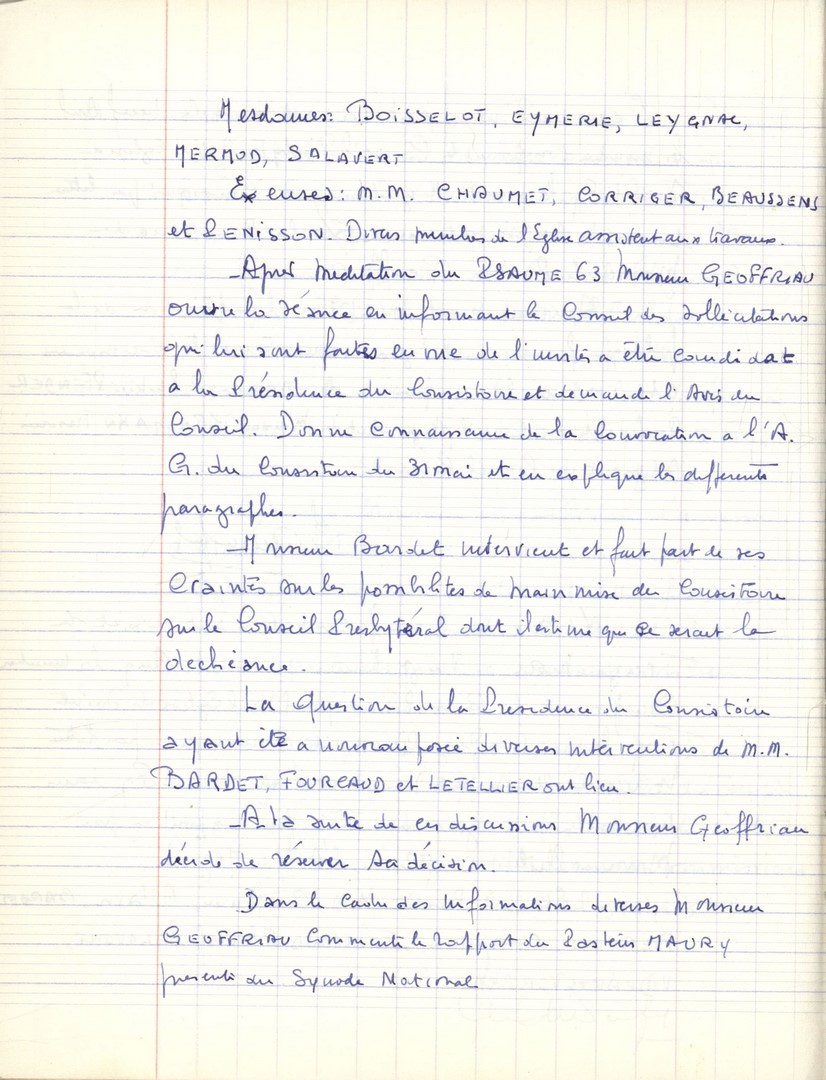 Mesdames: BOISSELOT, EYMERIE, LEYGNAC,
MERMOD, SALAVERT
Excuses: M.M. CHAUMET, CORRIGER, BEAUSSENS
et DENISSON. Divers membres de l'Eglise assistent aux travaux.
-Apres meditation du PSAUME 63 Monsieur GEOFFRIAU
ouvre la séance en informant le Conseil des sollicitations
qui lui sont faites en vue de l'inviter a être candidat
a la Présidence du Consistoire et demande l'Avis du
Conseil. Donne connaissance de la convocation a l'A.
G. du Consistoire du 31 mai et en explique les differents
paragraphes.
-Monsieur Bardet intervient et fait part de ses
Craintes sur les possibilites de main mise du Consistoire
sur le Conseil Presbytéral dont il estime que ce serait la
dechéance.
La Question de la Presidence du Consistoire
ayant été a nouveau posée diverses interventions de M.M.
BARDET, FOURCAUD et LETELLIER ont lieu.
-A la suite de ces discussions Monsieur Geoffriau
décide de réserver sa décision.
Dans le Cadre des Informations diverses Monsieur
GEOFFRIAU Commente le rapport du Pasteur MAURY
presenté au Synode National